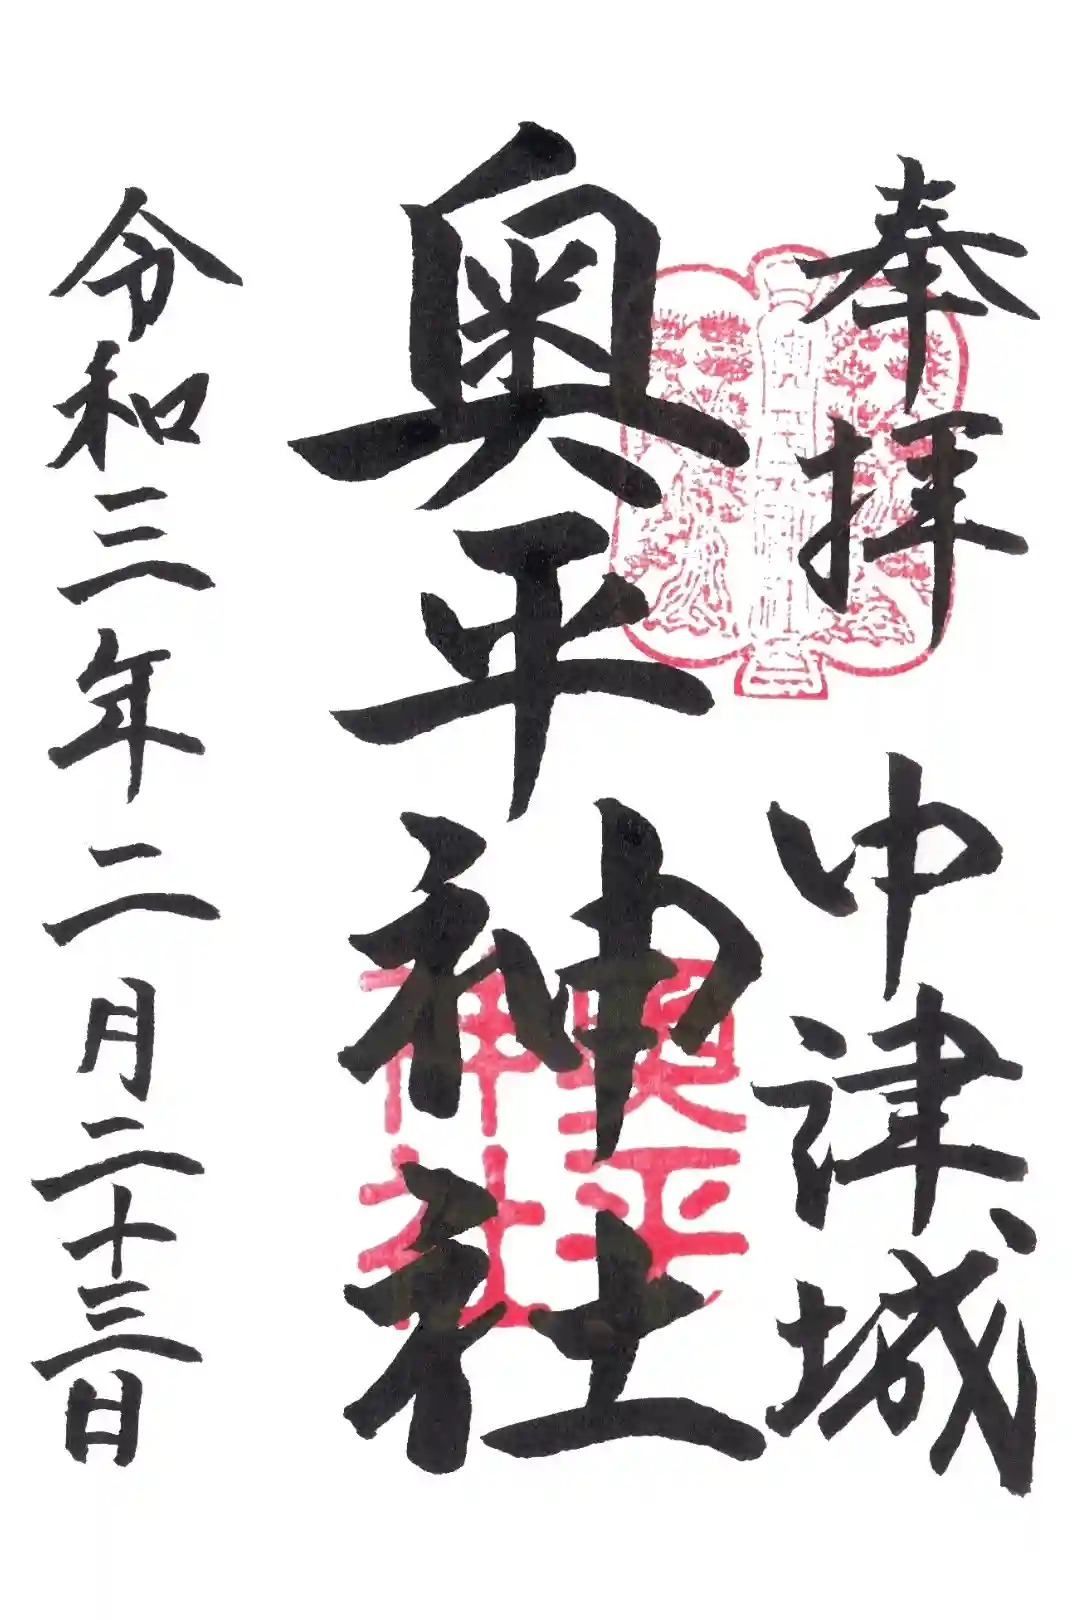 奉拝
中津城
奥平神社
奥平
神社
令和三年二月二十三日